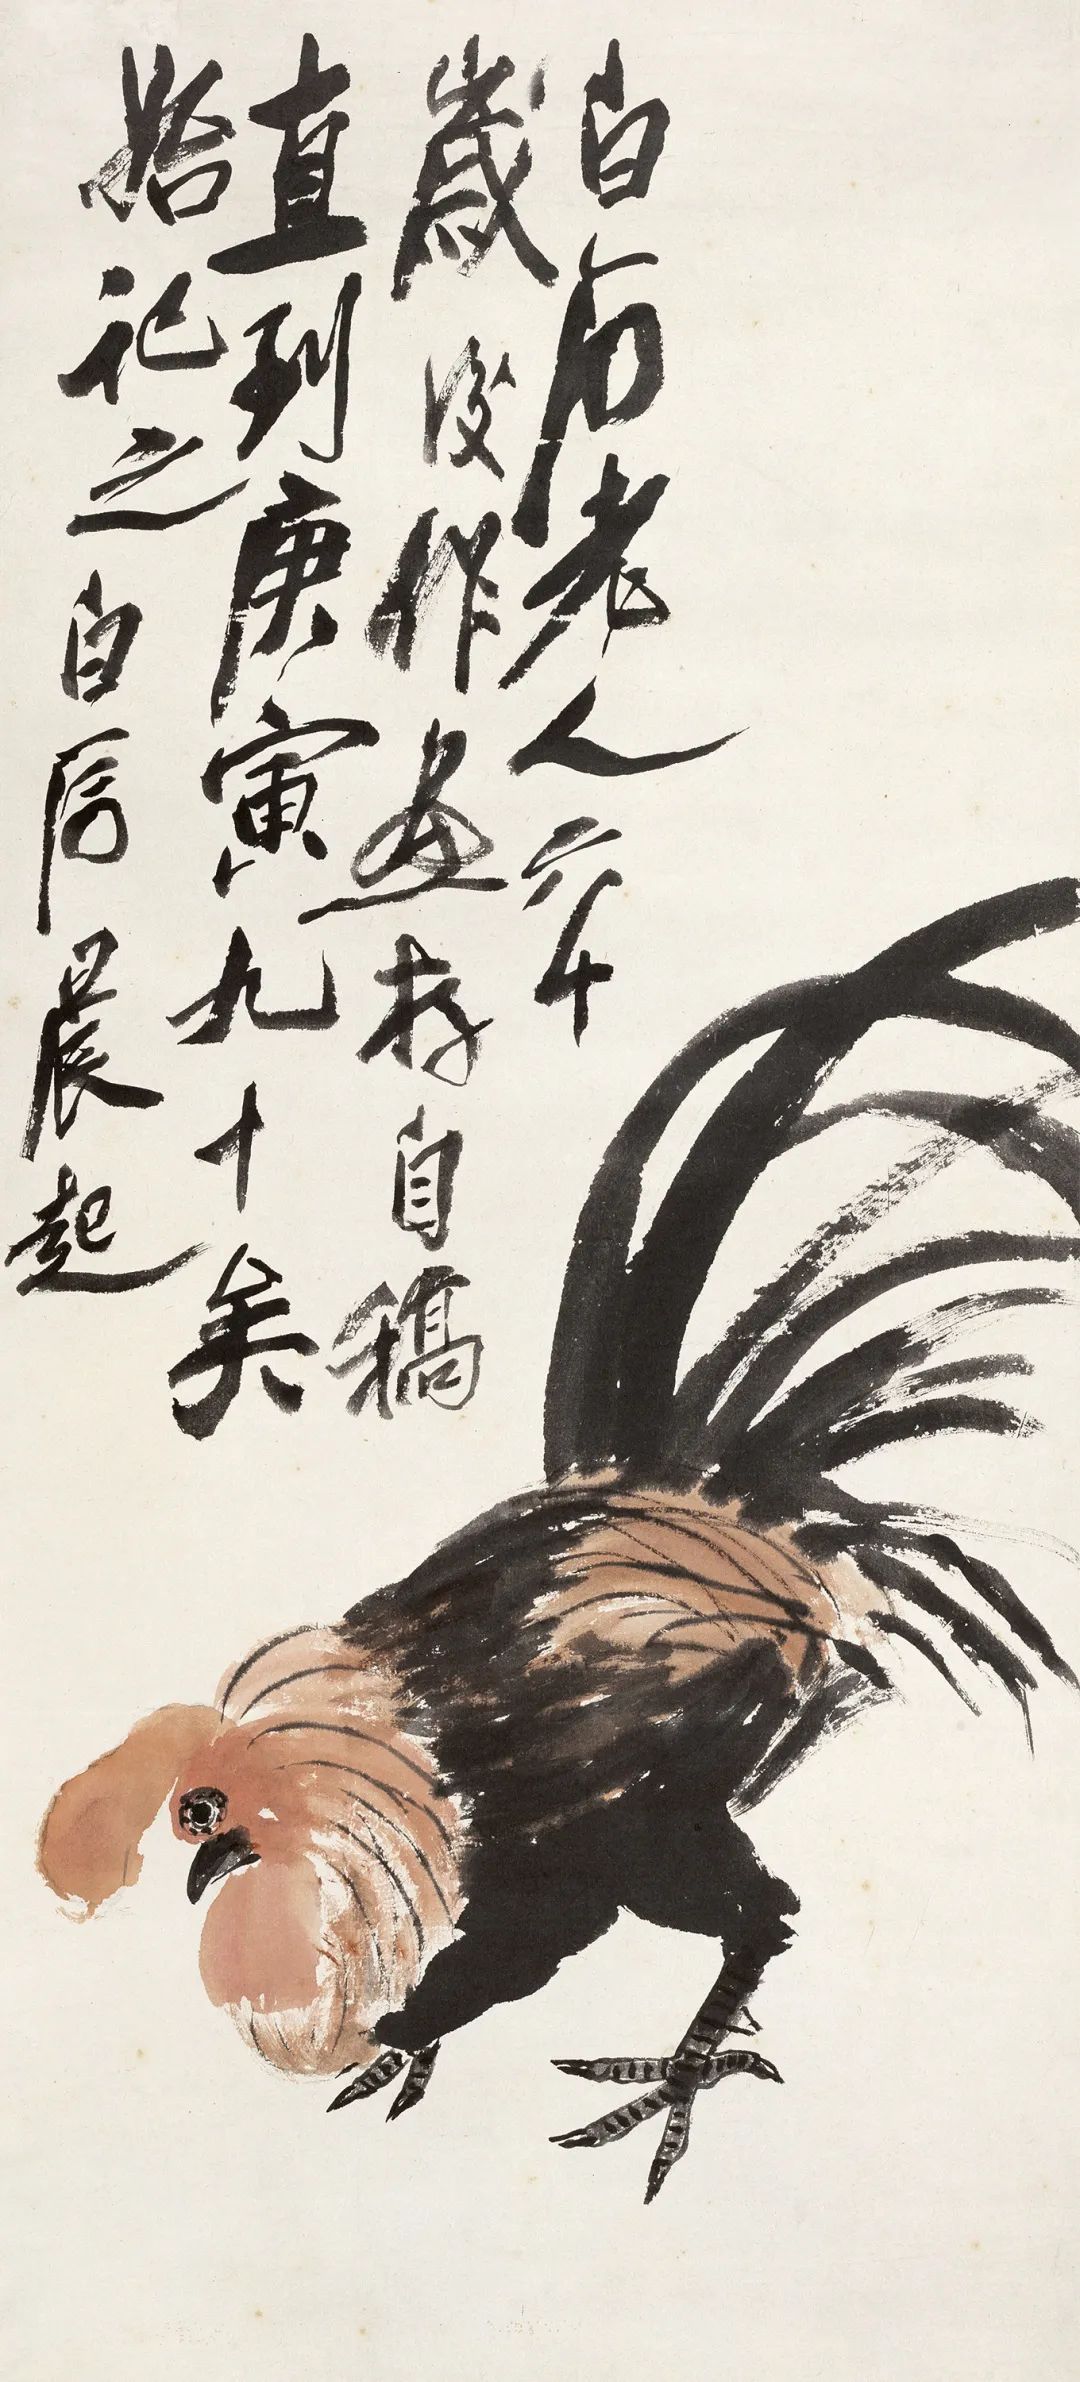 白石老人六十
歲後作畫存自稿
直到庚寅九十矣
始記之白石晨起